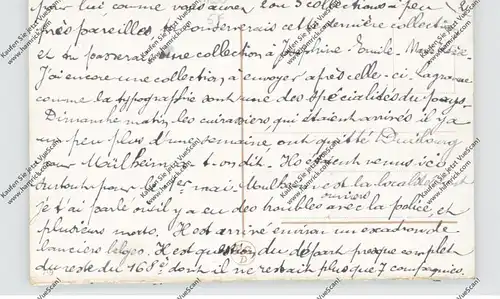 pour lui comme vous aurez 2 ou 3 collections à peu
près pareilles conserverais cette dernière collection
et on passerait une collection à Joséphine - Emile -
J'ai encore une collection à envoyer après celle-ci. La gravure
comme la typographie sont une des spécialités du pays.
Dimanche matin les cuirassiers qui étaient arrivés il y a
un peu plus d'une semaine, ont quitté Duisbourg
pour Mülheim a-t-on dit. Ils étaient venus ici
surtout pour le 1er mai. est la localité dont
je t'ai parlé où il y a eu des troubles avec la police, et
plusieurs morts. Il est arrivé environ un escadron de
lanciers belges. Il est question du départ presque complet
du reste du 168e dont il ne restait plus que 7 compagnies.